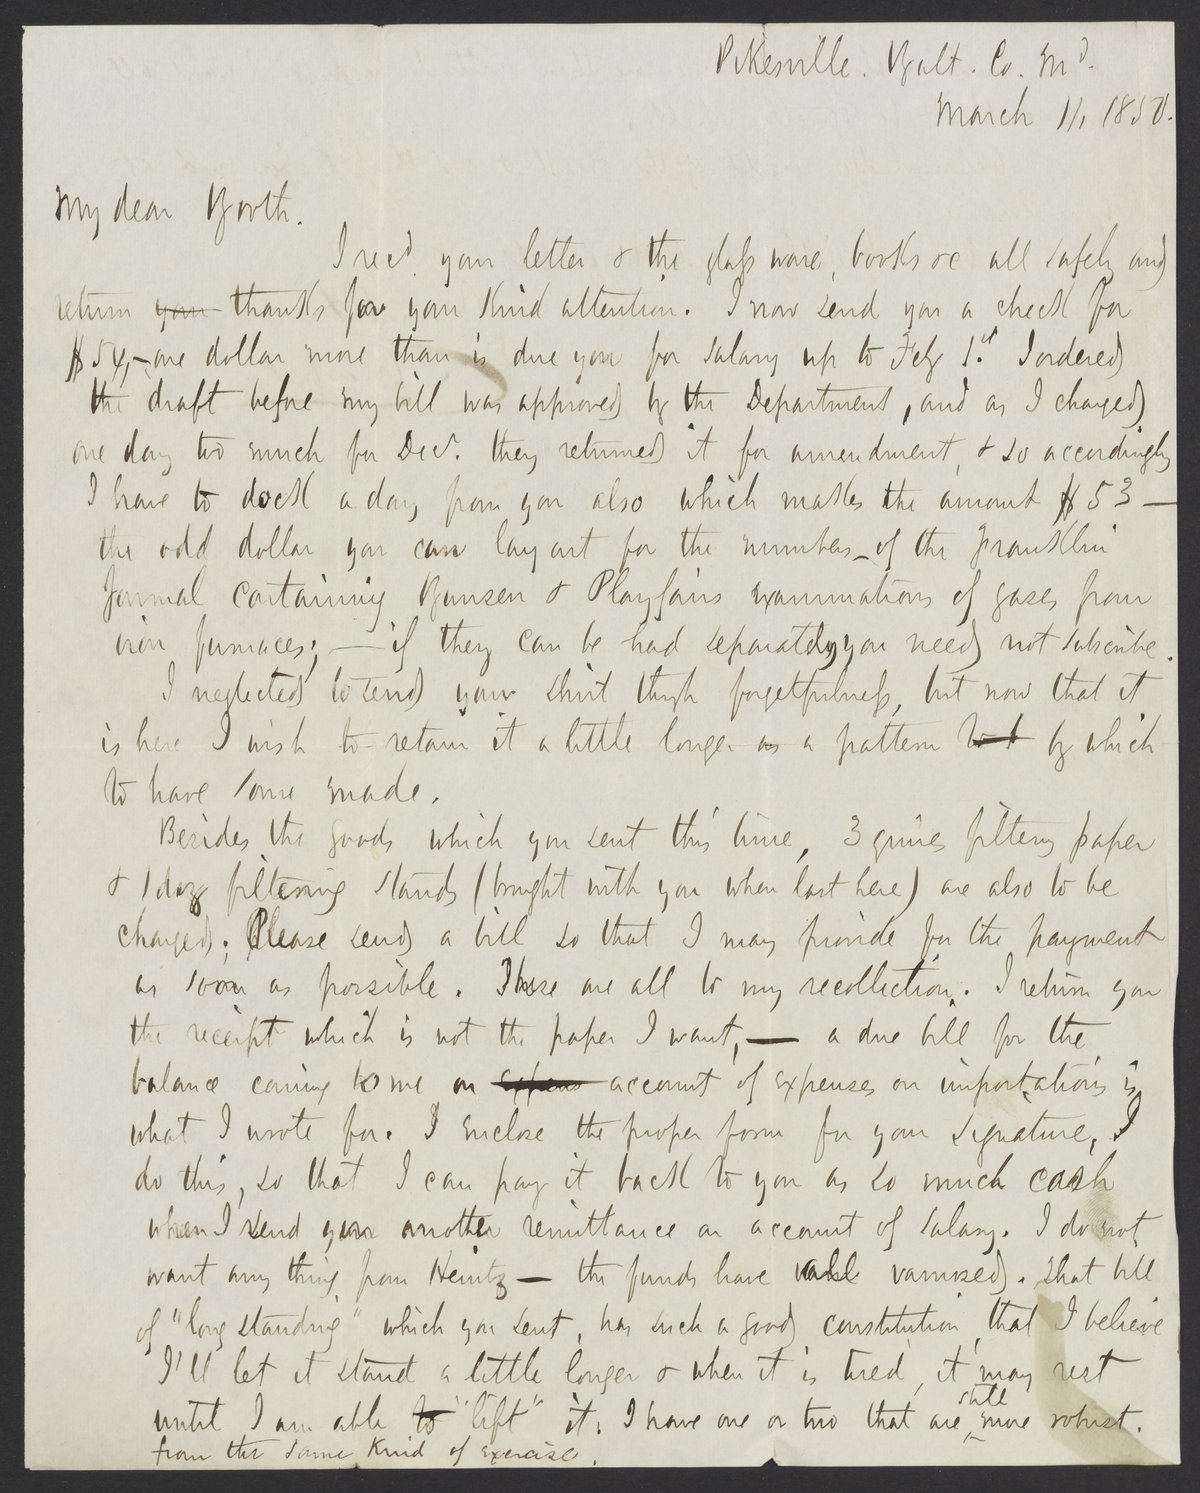 Pikesville. Balt. Co. Md.
March 11, 1850.
My dear Booth.
I recd. your letter & the glass ware, books &c all safely and
return your thanks for your kind attention. I now send you a check for
$54,- one dollar more than is due you for salary up to Feby 1st. I ordered
the draft before my bill was approved by the Department, and as I charged
one day too much for Decr. they returned it for amendment, & so accordingly
I have to dock a day from you also which makes the amount $53 —
the odd dollar you can lay out for the numbers of the Franklin
Journal containing Bunsen & Playfairs examinations of gases from
iron furnaces; — if they can be had separately you need not subscribe.
I neglected to send your shirt thrgh forgetfulness, but now that it
is here I wish to retain it a little longer as a pattern by which
to have some made.
Besides the goods which you sent this time, 3 quires filterg paper
& 1 doz filtering stands (brought with you when last here) are also to be
charged. Please send a bill so that I may provide for the payment
as soon as possible. These are all to my recollection. I return you
the receipt which is not the paper I want, — a due bill for the
balance coming to me on expens account of expenses on importations is
what I wrote for. I enclose the proper form for your signature. I
do this, so that I can pay it back to you as so much cash
when I send you another remittance on account of salary. I do not
want any thing from Heintz — the funds have vamosed. That bill
of "long standing" which you sent, has such a good constitution that I believe
I'll let it stand a little longer & when it is tired, it may rest
until I am able to "lift" it. I have one or two that are still more robust.
from the same kind of exercise.